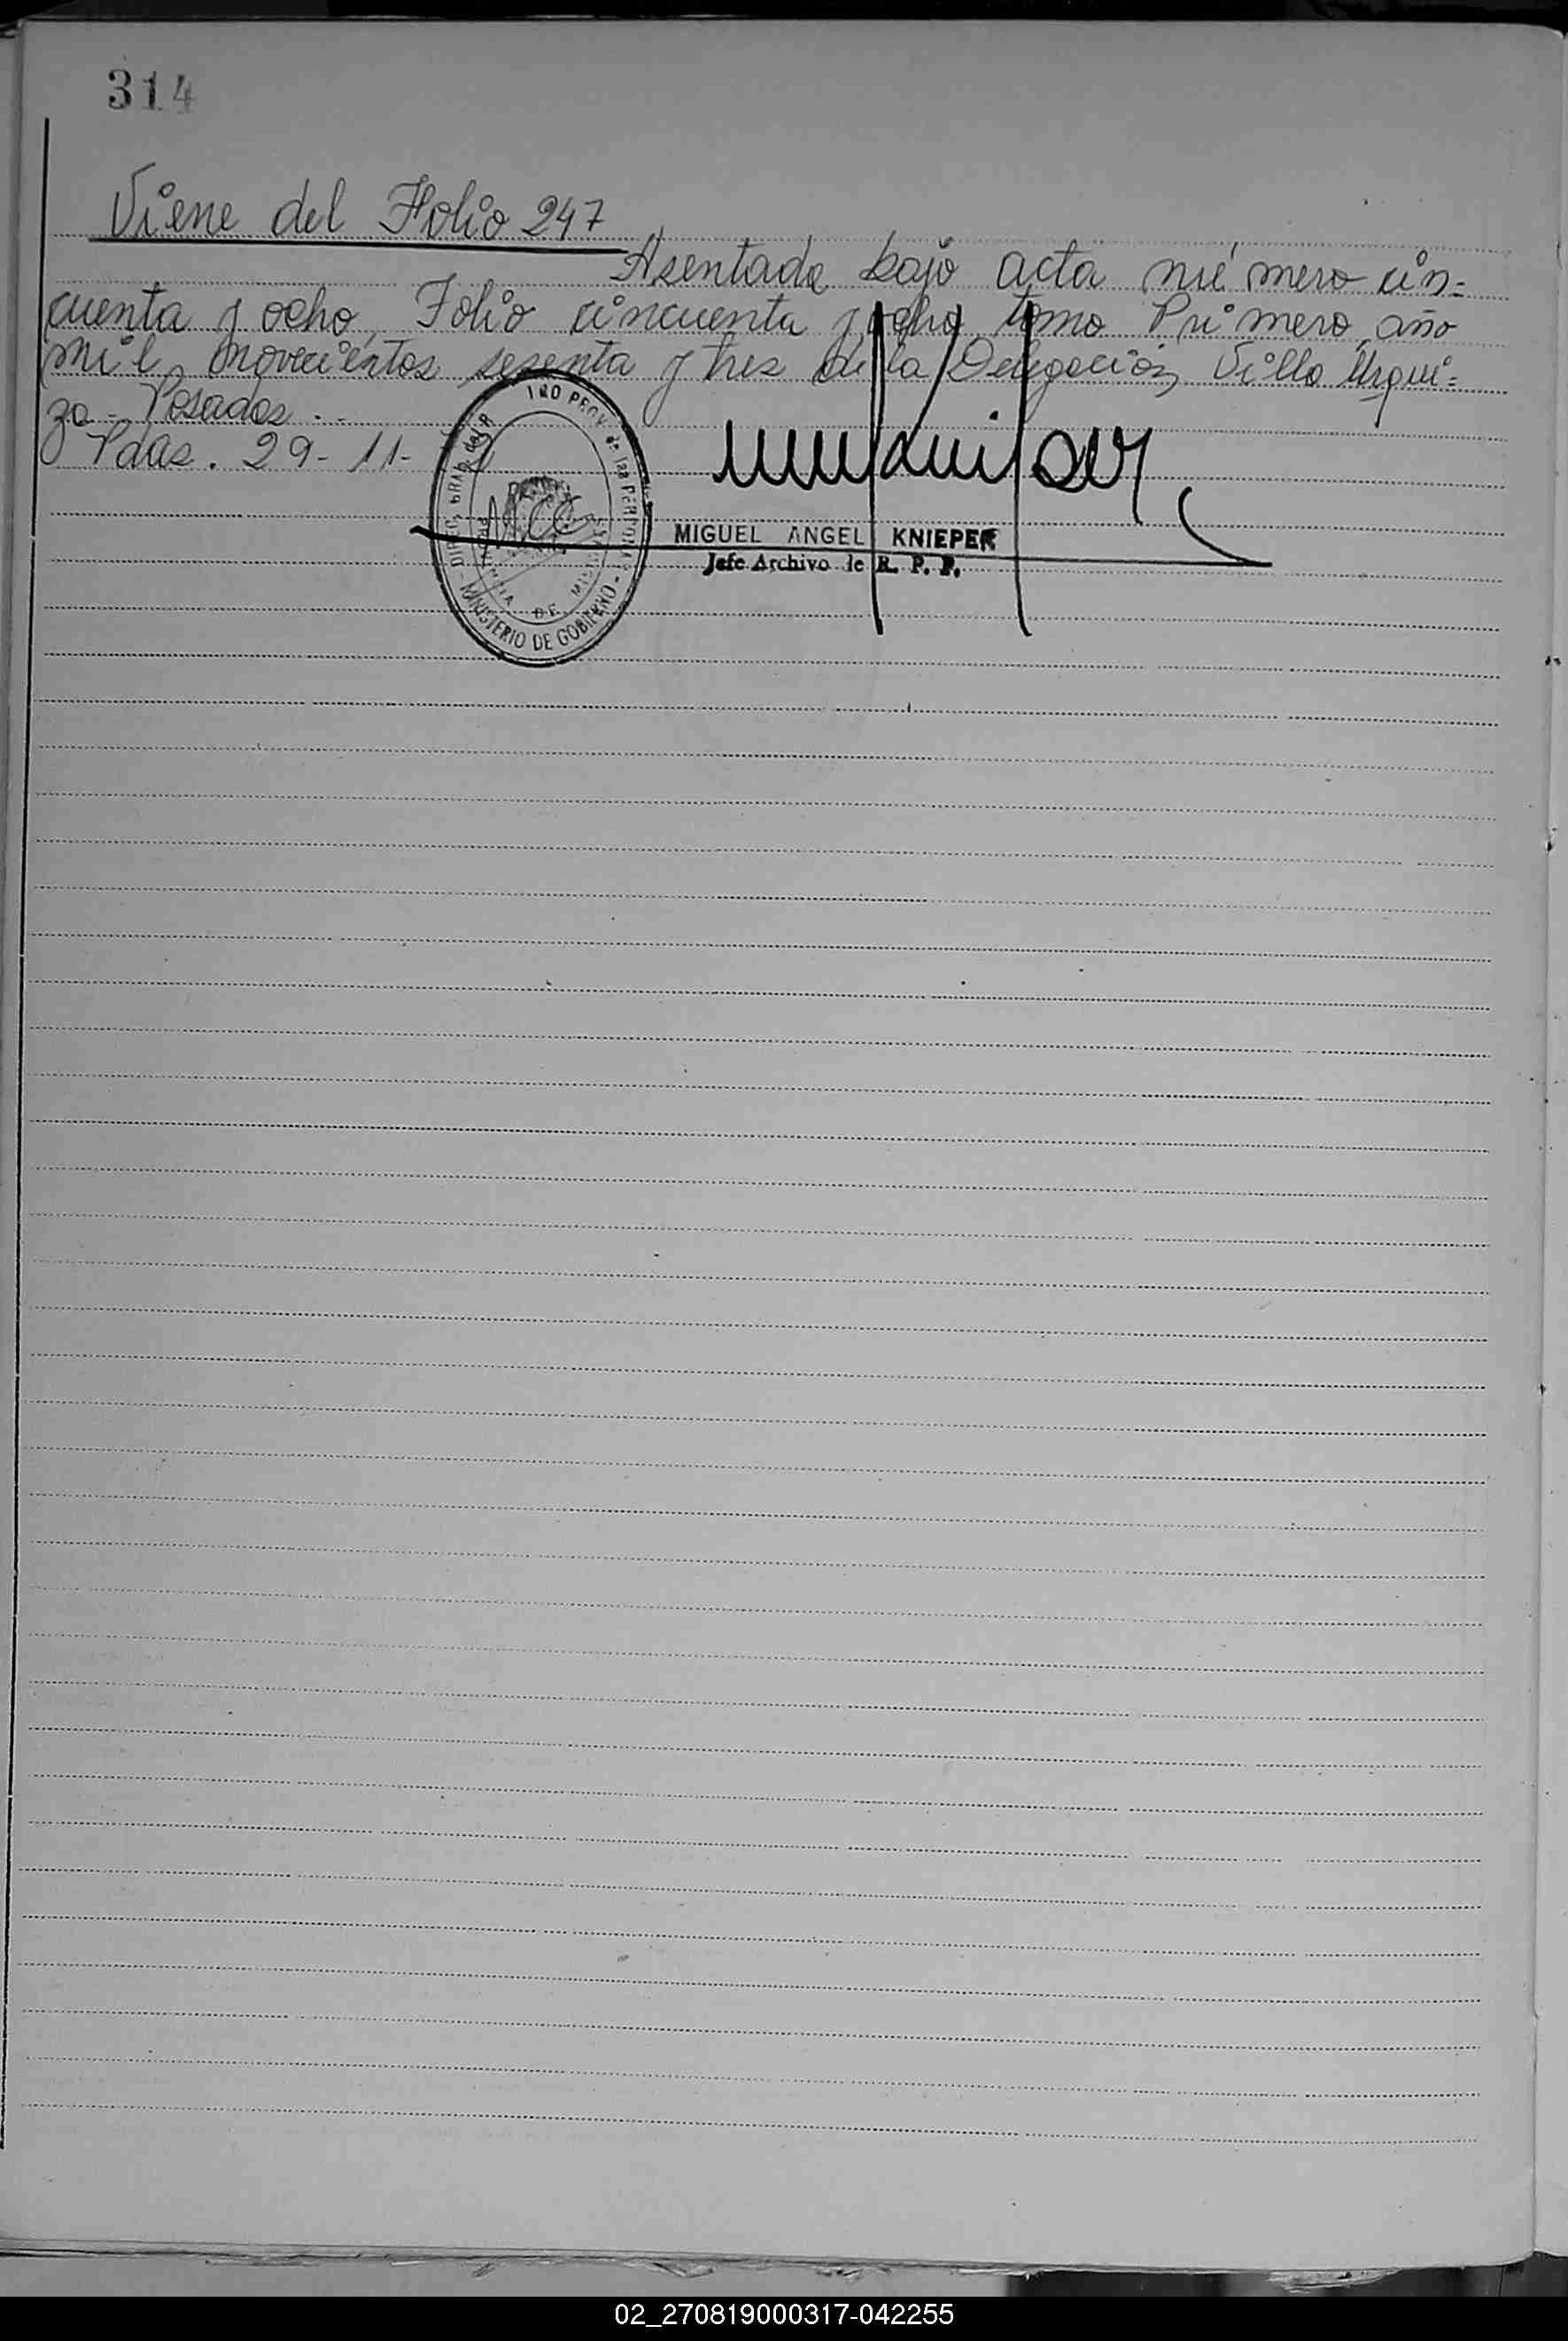 314
Viene del Folio 247
Asentada bajo acta número cin=
cuenta y ocho, Folio cincuenta y ocho tomo Primero, año
mil novecientos sesenta y tres de la Delegación Villa Urqui=
za - Posadas. --
Pdas. 29-11-
MINISTERIO DE GOBIERNO
MIGUEL ANGEL KNIEPER
Jefe Archivo de R. P. P.
02_270819000317-042255